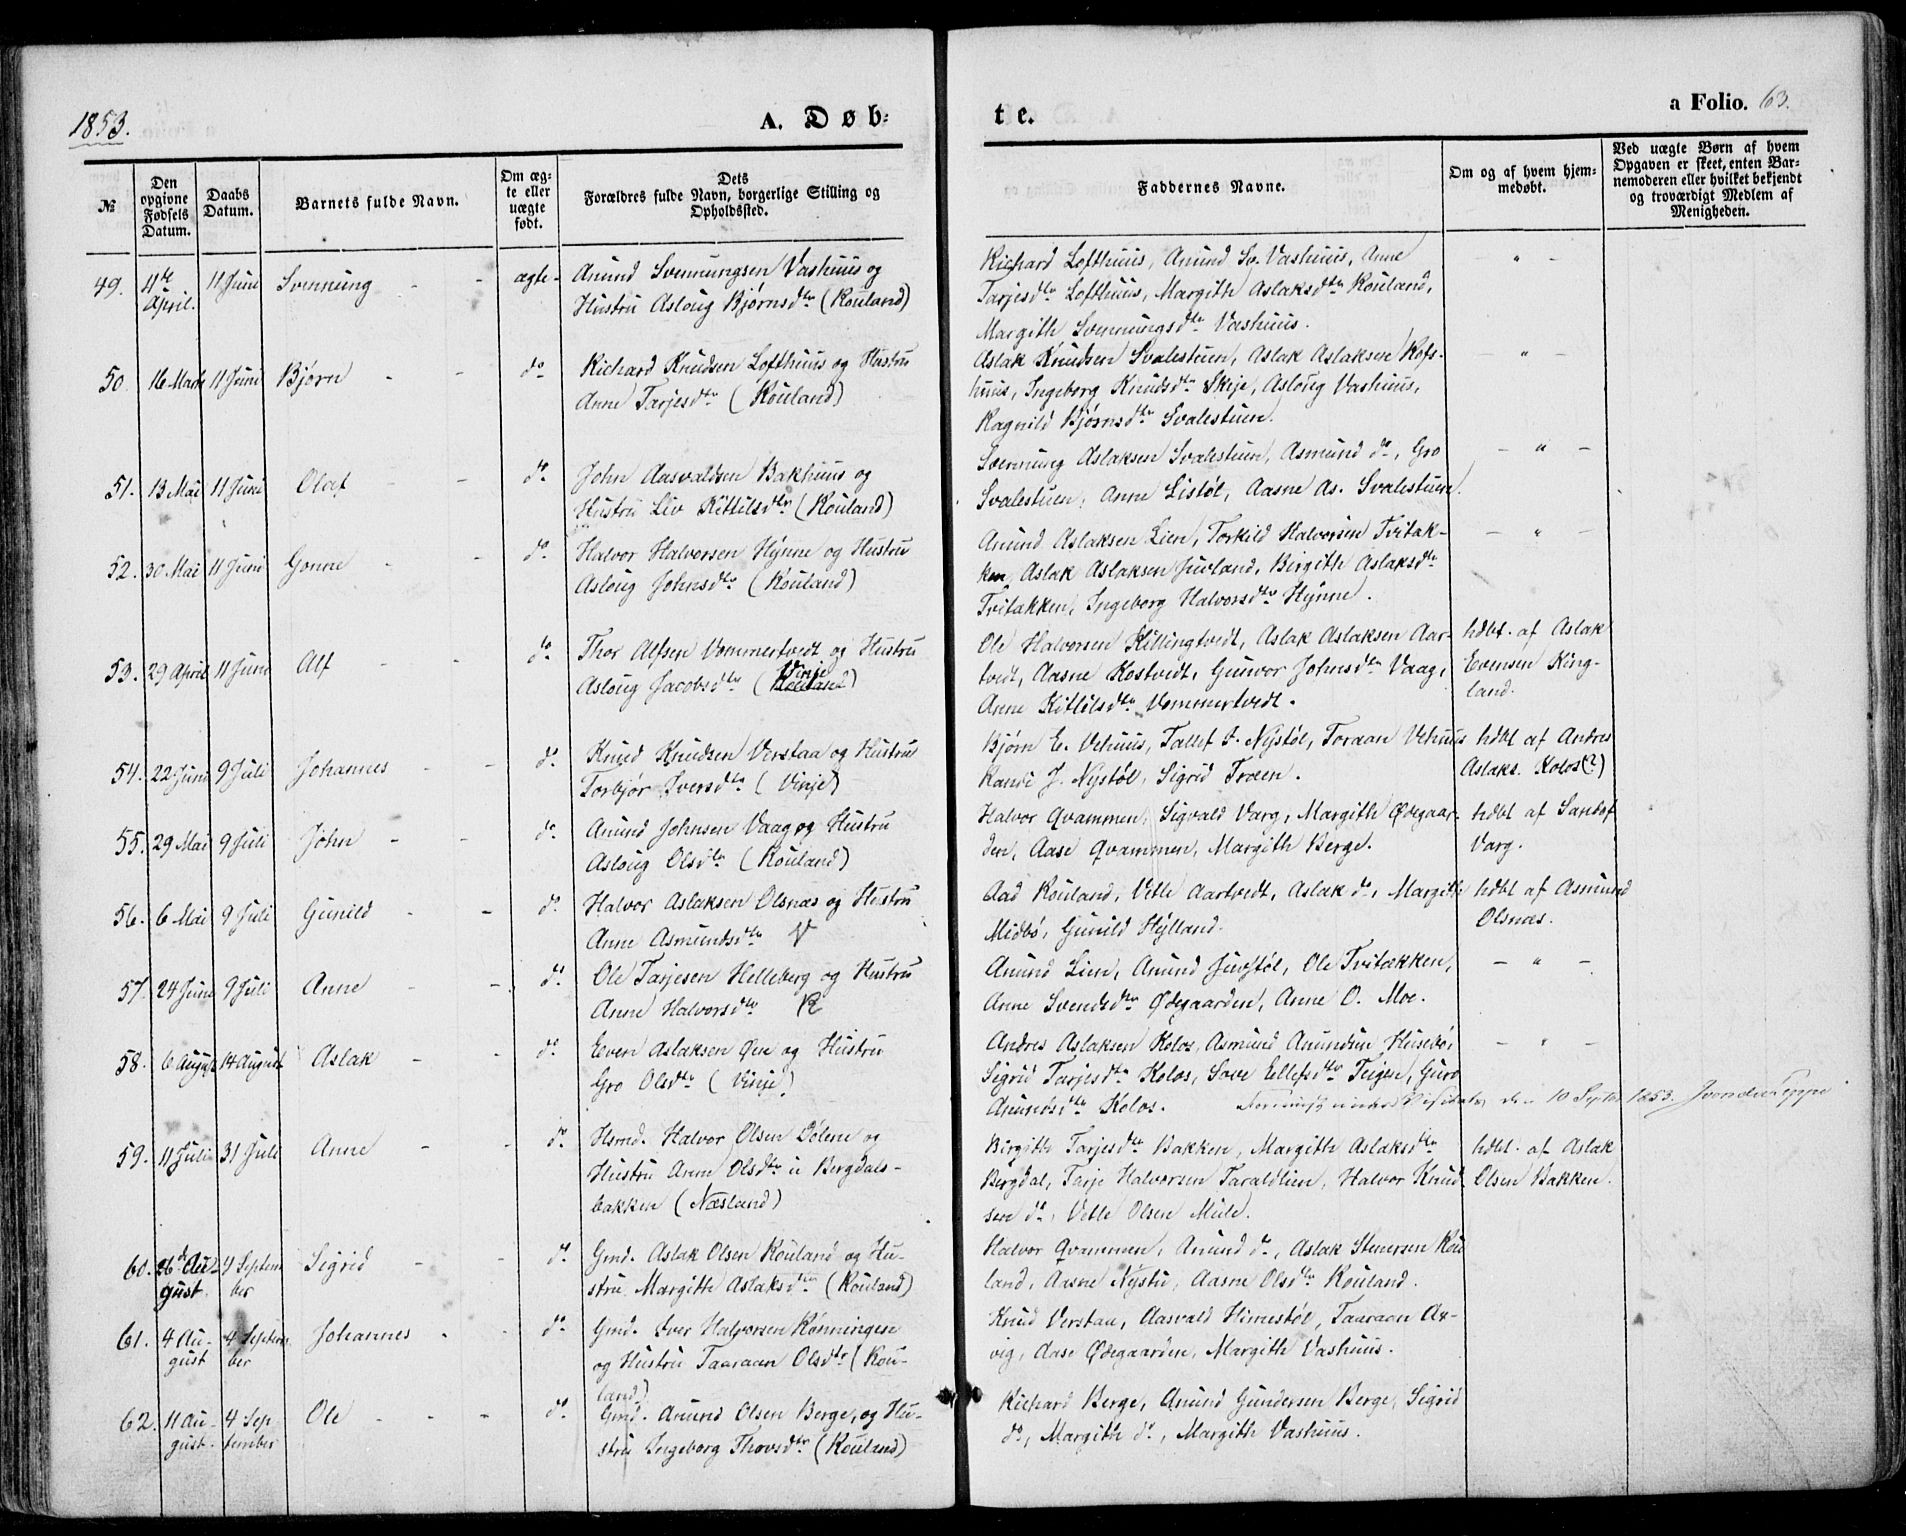 1853.
A. Døb-
te.
a Folio. 63.
№
Den
opgivne
Fødsels
Datum.
Daabs
Datum.
Barnets fulde Navn.
Om æg-
te eller
uægte
født.
Dets
Forældres fulde Navn, borgerlige Stilling og
Opholdssted.
Faddernes Navne.
Om og af hvem hjem-
medøbt.
Ved uægte Børn af hvem
Opgaven er skeet, enten Bar-
nemoderen eller hvilket bekjendt
og troværdigt Medlem af
Menigheden.
49. 4de April. 11 Juni Svennung - - ægte-
Anund Svennungsen Vashuus og
Hustru Asloug Bjørnsdtr (Rouland)
Richard Lofthuus, Anund Sv. Vashuus, Anne
Tarjesdtr Lofthuus, Margith Aslaksdtr Rouland,
Margith Svennungsdtr Vashuus.
- " -
50 16 Marts 11 Juni Bjørn - - do
Richard Knudsen Lofthuus og Hustru
Anne Tarjesdtr (Rouland)
Aslak Knudsen Svalestuen, Aslak Aslaksen Kofs-
huus, Ingeborg Knudsdtr Skije, Asloug Vashuus,
Ragnild Bjørnsdtr Svalestuen.
- " -
51. 13 Mai 11 Juni Olaf - - do
John Aasvaldsen Bakhuus og
Hustru Liv Kittilsdtr (Rouland)
Svennung Aslaksen Svalestuen, Asmund do, Gro
Svalestuen, Anne Listøl, Aasne As. Svalestuen.
- " -
52. 30 Mai 11 Juni Gonne - - do
Halvor Halvorsen Hynne og Hustru
Asloug Johnsdtr (Rouland)
Anund Aslaksen Lien, Torkild Halvorsen Tvitak-
ken, Aslak Aslaksen Juvland, Birgith Aslaksdtr
Tvitakken, Ingeborg Halvorsdtr Hynne.
- " -
53. 29 April 11 Juni Alf - - do
Thor Alfsen Vommertvedt og Hustru
Asloug Jacobsdtr (Rouland) Vinje
Ole Halvorsen Killingtvedt, Aslak Aslaksen Aar-
tvedt, Aasne Rostvedt, Gunvor Johnsdtr Vaag,
Anne Kittilsdtr Vommertvedt.
hdbt. af Aslak
Evensen Ring-
land.
54. 22 Juni 9 Juli Johannes - - do
Knud Knudsen Verstaa og Hustru
Torbjør Iversdtr (Vinje)
Bjørn E. Vehuus, Tallef J. Nystøl, Toraan Vehuus
Randi J. Nystøl, Sigrid Troen.
hdbt af Andres
Aslaks. Kolos(?)
55. 29 Mai 9 Juli John - - do
Anund Johnsen Vaag og Hustru
Asloug Olsdtr (Rouland)
Halvor Qvammen, Sigvald Varg, Margith Ødegaar-
den, Aase Qvammen, Margith Berge.
hdbt af Sandof
Varg.
56. 6 Mai 9 Juli Gunild - - do
Halvor Aslaksen Olsnæs og Hustru
Anne Asmundsdtr V
Aad Rouland, Vetle Aartvedt, Aslak do, Margith
Midbø, Gunild Hylland.
hdbt af Asmund
Olsnæs.
57. 24 Juni 9 Juli Anne - - do
Ole Tarjesen Helleberg og Hustru
Anne Halvorsdtr R
Anund Lien, Anund Juvstøl, Ole Tvitækken,
Anne Svendsdtr Ødegaarden, Anne O. Moe.
- " -
58. 6 August 14 August Aslak - - do
Even Aslaksen Øen og Hustru
Gro Olsdtr (Vinje)
Andres Aslaksen Kolos, Asmund Anundsen Husebø,
Sigrid Tarjesdtr Kolos, Save Ellefsdtr Teigen, Guro
Anundsdtr Kolos.
- " -
10 Septbr 1853.
59. 11 Juli 31 Juli Anne - - do
Hsmd. Halvor Olsen Dølene og
Hustru Anne Olsdtr u Bergdals-
bakken (Næsland)
Birgith Tarjesdtr Bakken, Margith Aslaksdtr
Bergdal, Tarje Halvorsen Taraldlien, Halvor Knud-
sen do, Vetle Olsen Mule.
hdbt. af Aslak
Olsen Bakken.
60. 26d Au-
gust. 4 Septem
ber Sigrid - - do
Gmd. Aslak Olsen Rouland og Hu-
stru Margith Aslaksdtr (Rouland)
Halvor Qvammen, Anund do, Aslak Stenersen Rou
land, Aasne Nystu, Aasne Olsdtr Rouland.
61. 4 Au-
gust 4 Septem
ber Johannes - - do
Gmd. Iver Halvorsen Rønningen
og Hustru Taaraan Olsdtr (Rou-
land)
Knud Verstaa, Aasvald Himestøl, Taaraan Ar-
vig, Aase Ødegaarden, Margith Vashuus.
62. 11 Au-
gust. 4 Sep
tember Ole - - - do
Gmd. Anund Olsen Berge, og Hu-
stru Ingeborg Thovsdtr (Rouland)
Richard Berge, Anund Gundersen Berge, Sigrid
do, Margith do, Margith Vashuus.